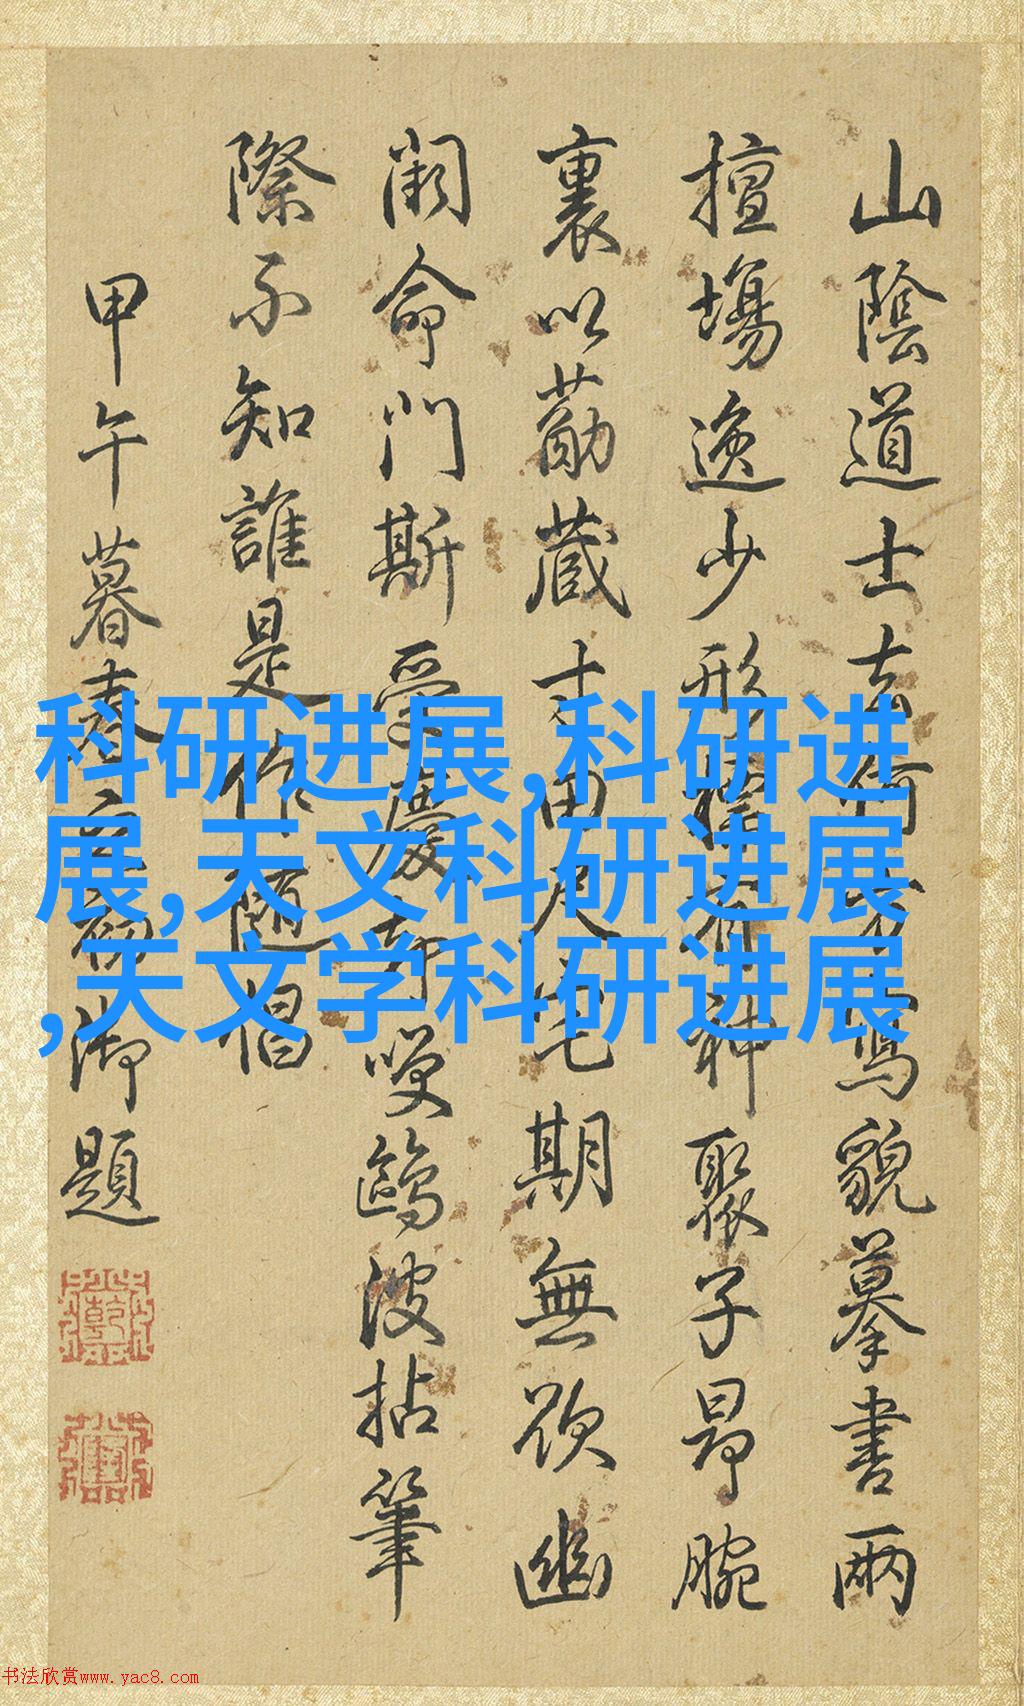 科研进展,科研进
展,天文科研进展
,天文学科研进展
山陰道士去何寫貌摹書兩
擅場逸少形神聚子昂腕
裏以藏寸田尺宅期無欲幽
闕命門斯受慶鷗波拈筆
際不知誰是作隨倡
甲午暮春之初御題
书法欣赏www.yac8.com